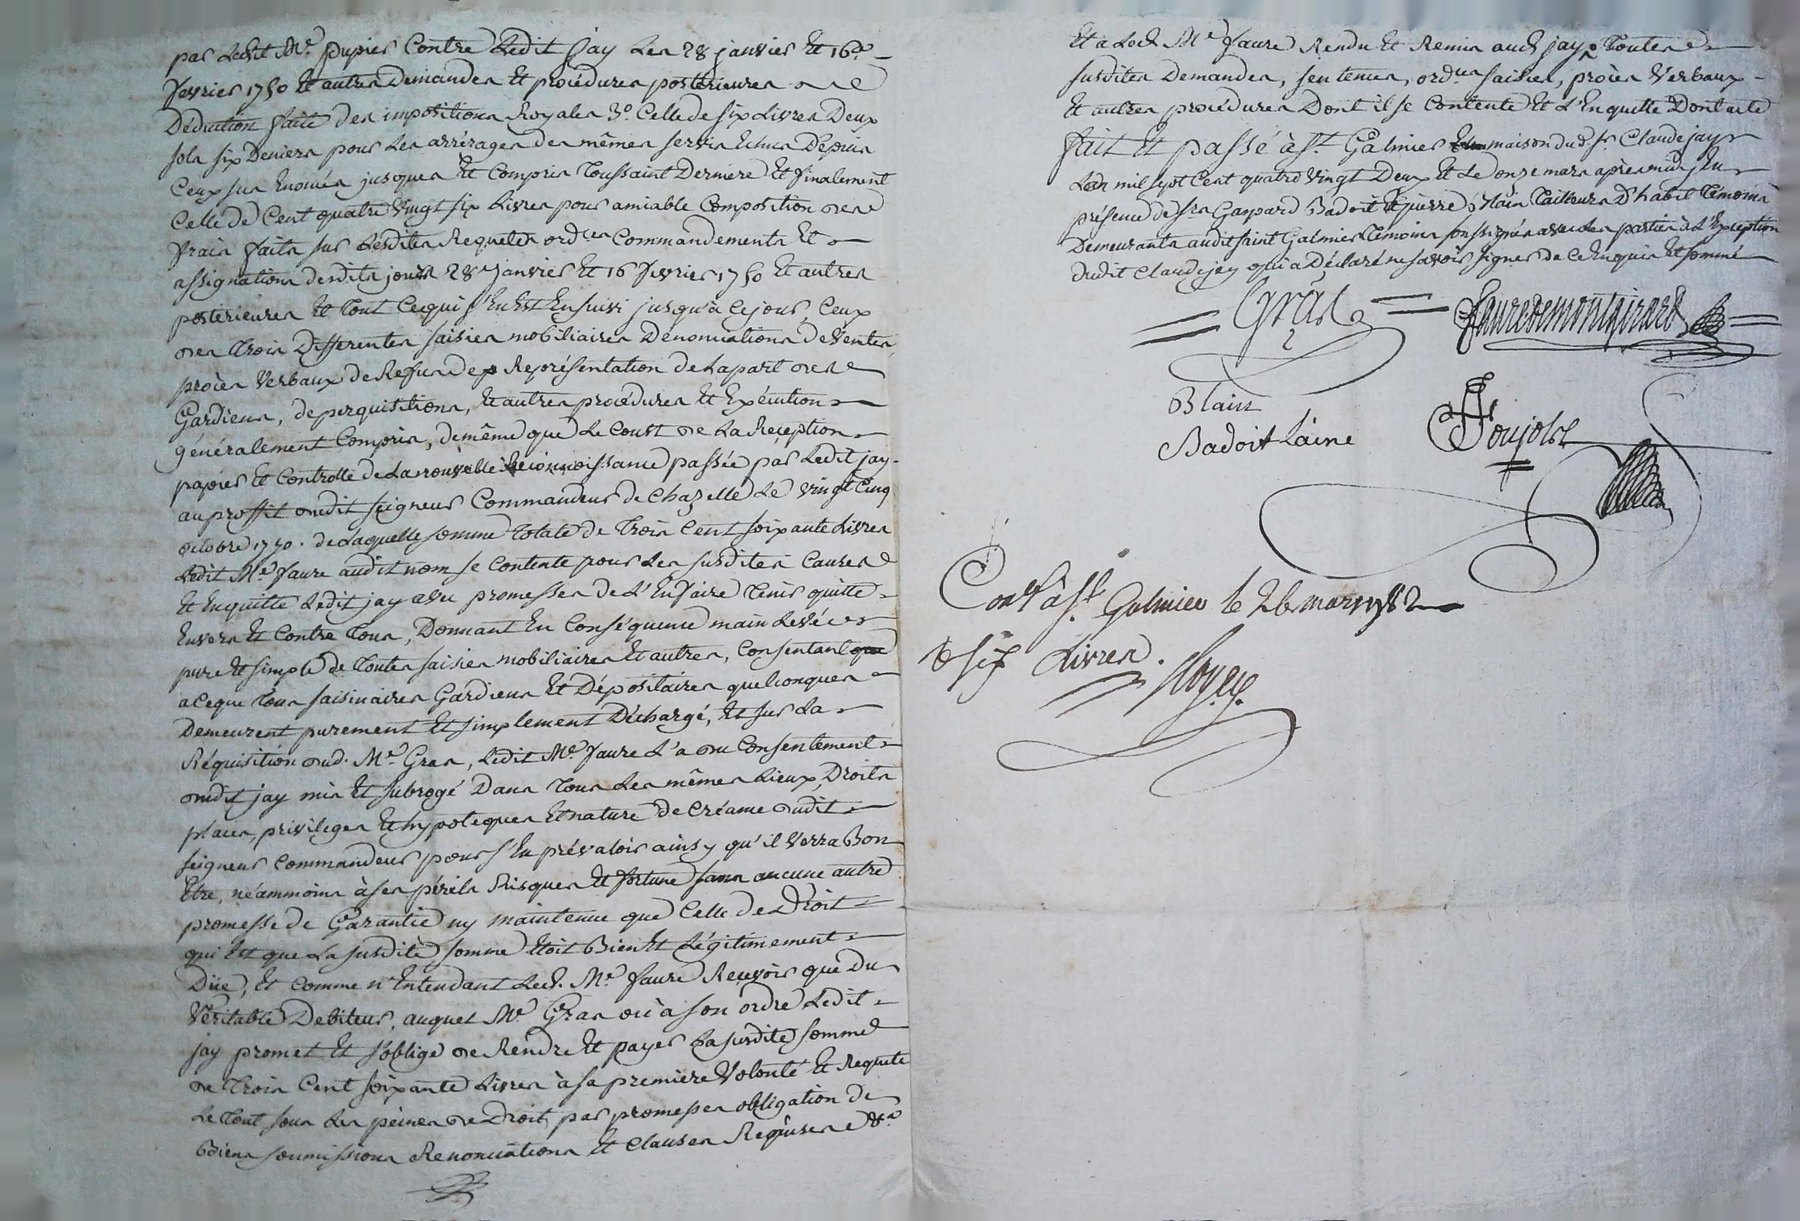 par Ledit Me. pupier Contre Ledit jay Les 28 janvier Et 16e.
fevrier 1750 Et autres Demandes Et procédures postérieures
Déduction faite des impositions Royales 3o. Celle de six Livres Deux
sols six Deniers pour Les arrérages des mêmes servis Echus Depuis
Ceux sus Enoncés jusques Et Compris Toussaint Derniere Et finalement
Celle de Cent quatre Vingt six Livres pour amiable Composition des
frais faits sur Lesdites Requetes ordces Commandements Et
assignations desdits jours 28 janvier Et 16 fevrier 1750 Et autres
postérieures Et Tout Cequi s'En Est Ensuivi jusqu'à Cejour, Ceux
des Trois Differentes saisies mobiliaires Dénonciations de Ventes,
procès Verbaux de Refus de Représentation de La part des
Gardiens, de perquisitions, Et autres procédures Et Exécution
généralement Compris, de même que Le Coust de La Reception
papier Et Controlle de La nouvelle Reconnoissance passée par Ledit jay
au proffit dudit seigneur Commandeur de Chazelle Le Vingt Cinq
octobre 1750. de Laquelle somme Totale de Trois Cent soixante Livres
Ledit Me. faure audit nom se Contente pour Les susdites Causes
Et En quitte Ledit jay avec promesses de L'En faire Tenir quitte
Envers Et Contre Tous, Donnant En Conséquence main Levée
pure Et simple de Toutes saisies mobiliaires Et autres, Consentant
a Ceque Tous saisinaires Gardiens Et Dépositaires quelconques
Demeurent purement Et simplement Déchargé, Et sur La
Réquisition dud. Me. Gras, Ledit Me. faure L'a du Consentement
dudit jay mis Et subrogé Dans Tous Les mêmes Lieux, Droits
places, privileges Et hypoteques Et nature de Créance dudit
seigneur Commandeur pour s'En prévaloir ainsy qu'il Verra Bon
Etre, néammoins à ses périls Risques Et fortune sans aucune autre
promesse de Garantie ny maintenue que Celle de Droit
qui Est que La susdite somme Etoit Bien Et Légitimement
Düe, Et Comme n'Entendant Led. Me. faure Recevoir que du
Véritable Debiteur, auquel Me. Gras ou à son ordre Ledit
jay promet Et s'oblige de Rendre Et payer La susdite somme
de Trois Cent soixante Livres à sa premiere Volonté Et Requete
Le Tout sous Les peines de Droit, par promesses obligation de
Biens soumissions Renonciations Et Clauses Requises &a
Et a Led. Me faure Rendu Et Remis aud. jay Toutes
susdites Demandes, sentences, ordces saisies, procès Verbaux
Et autres procédures Dont il se Contente Et L'En quitte Dont acte
fait Et passé à St. Galmier maison dud. sr. Claude jay
L'an mil sept Cent quatre Vingt Deux Et Le onze mars après midy En
présence de srs Gaspard Badoit Et pierre Blain Tailleurs D'habit Témoins
Demeurants audit saint Galmier Témoins soussignés avec Les parties à L'Exception
dudit Claude jay qui a Déclaré ne savoir signer de Ce Enquis Et sommé
Gras
fauredemontgirard
Blain
Badoit Laine
Poujols
Contlé à St. Galmier le 26 mars 1782
R six Livres.